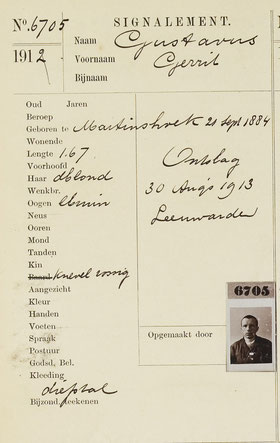 No. 6705 SIGNALEMENT.
1912 Naam Gustavus
Voornaam Gerrit
Bijnaam
Oud Jaren
Beroep
Geboren te Martinshoek 21 sept 1884
Wonende
Lengte 1.67
Voorhoofd Ontslag
Haar dblond
Wenkbr. 30 Aug's 1913
Oogen lbruin
Neus Leeuwarden
Ooren
Mond
Tanden
Kin
Baard knevel rossig
Aangezicht
Kleur 6705
Handen
Voeten
Spraak Opgemaakt door
Postuur
Godsd. Bel.
Kleeding
diefstal
Bijzond. teekenen